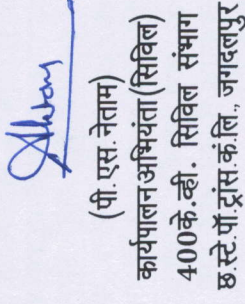 (पी.एस.नेताम)
कार्यपालनअभियंता(सिविल)
400के.व्ही. सिविल संभाग
छ.स्टे.पॉ.ट्रांस.कं.लि., जगदलपुर